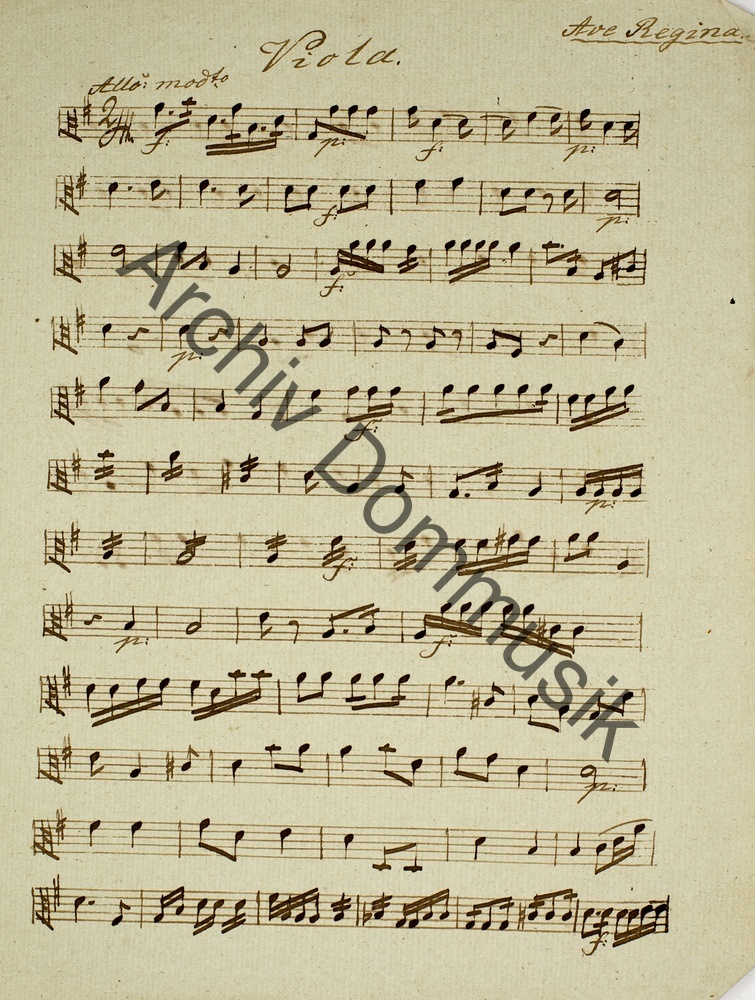 Ave Regina.
Viola.
Allo: modto
2/4
f: p: f: p:
f: p:
f:
p:
f:
p:
f:
p: f:
p:
f:
Archiv Dommusik